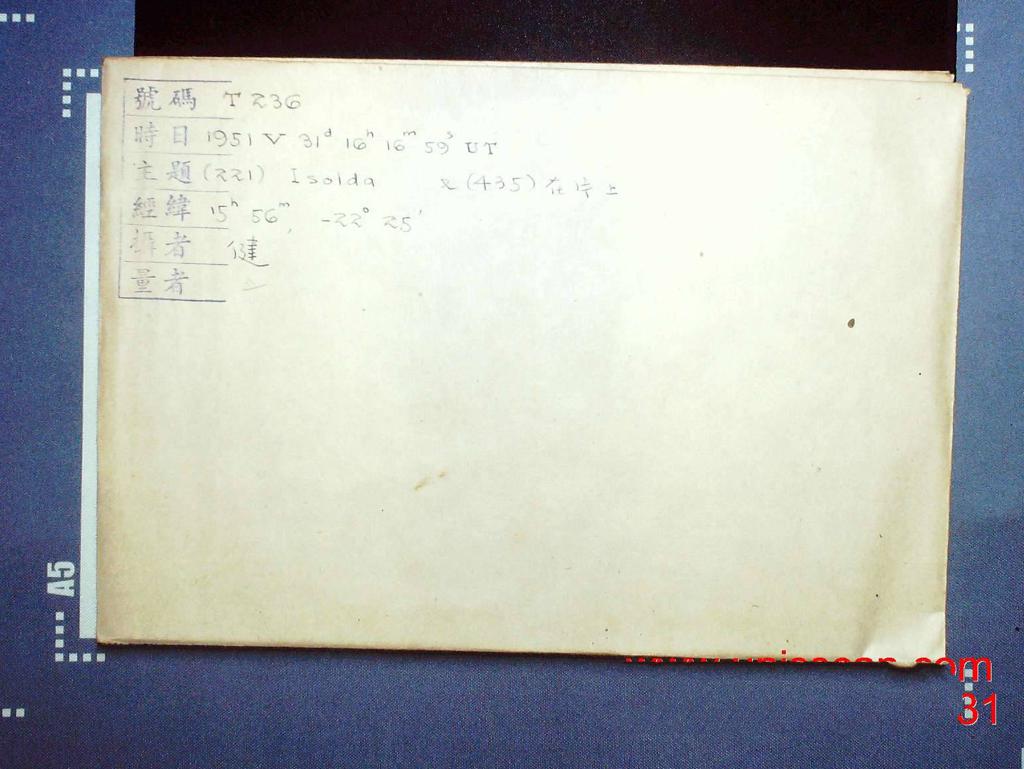 號碼 T 236
時日 1951 V 31d 16h 16m 59s UT
主題 (221) Isolda 又(435)在片上
經緯 15h 56m, -22° 25'
攝者 健
量者
A5
31